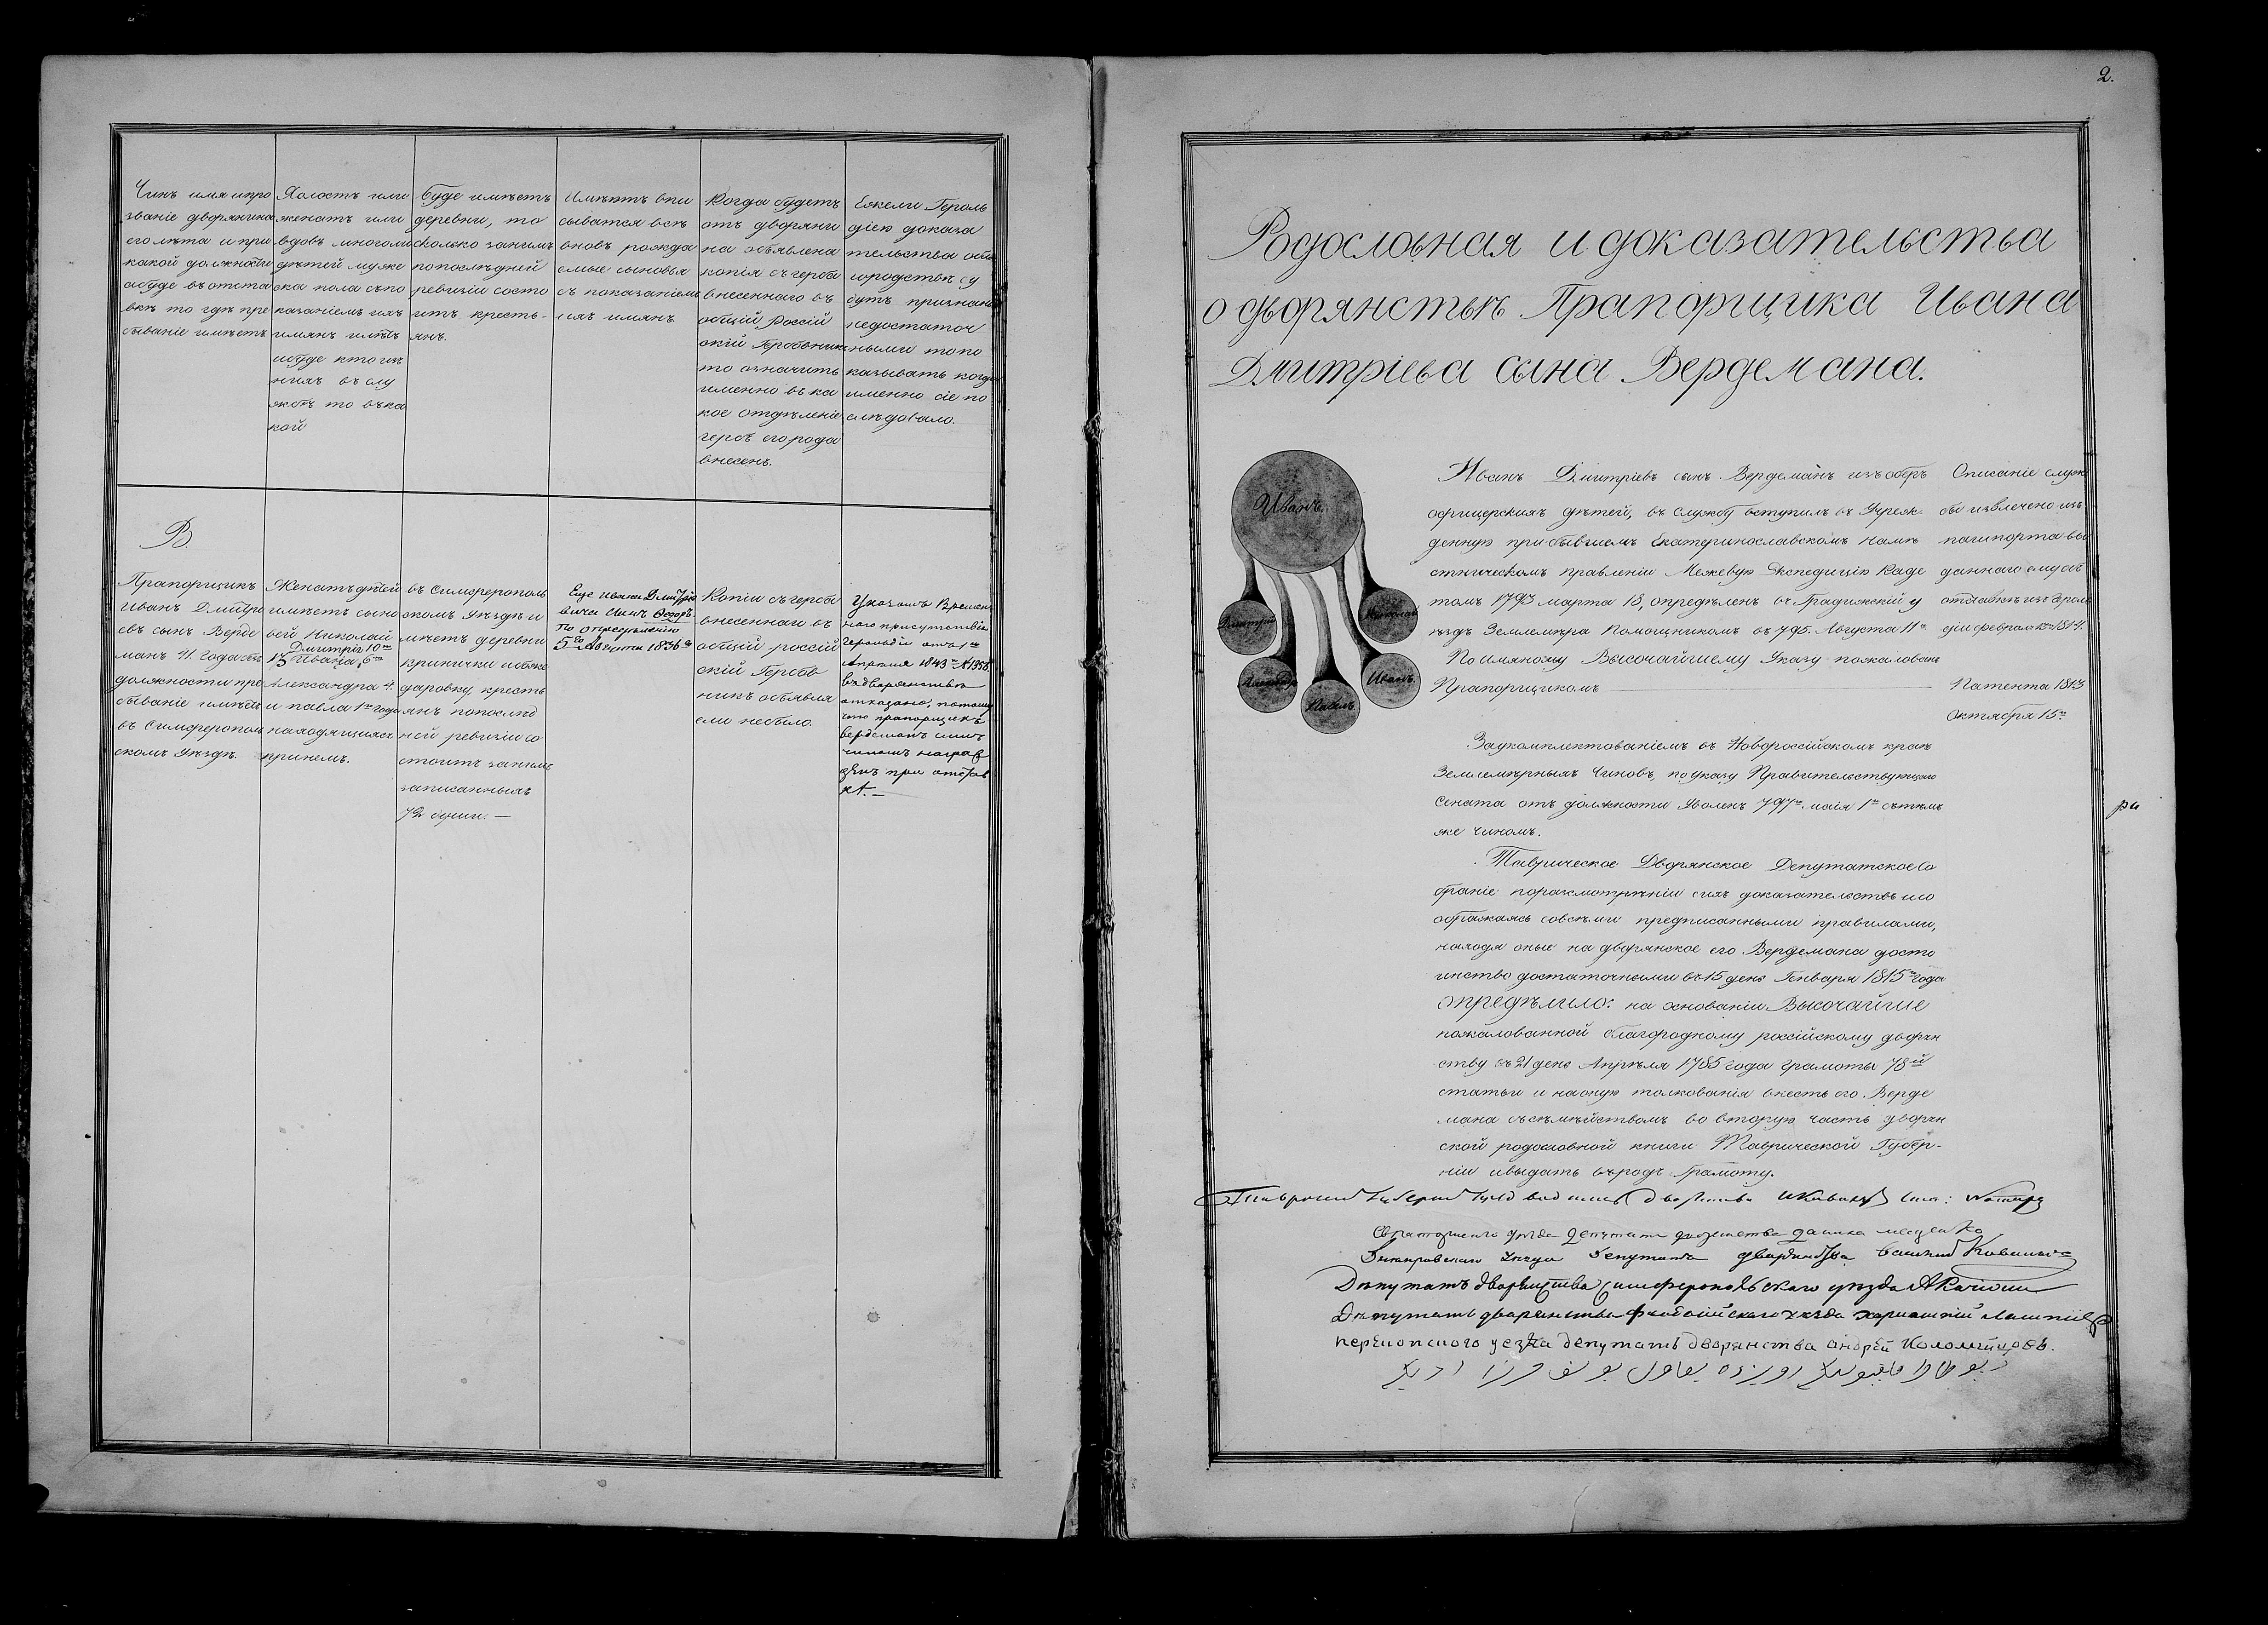 Чинъ имя и про
званіе дворянина
его лѣта и при
какой должности
а буде въ отста
вкѣ то гдѣ пре
бываніе имѣетъ
Холостъ или
женатъ или
вдовъ много ли
дѣтей муже
ска пола съ по
казаніемъ ихъ
имянъ и лѣтъ
и буде кто изъ
нихъ въ слу
жбѣ то въ ка
кой
буде имѣетъ
деревни, то
сколько за нимъ
по послѣдней
ревизіи состо
итъ кресть-
янъ.
Имѣютъ впи
сыватся всѣ
вновь рожда
емые сыновья
съ показаніемъ
ихъ имянъ
Когда будетъ
отъ дворяни
на объявлена
копія съ герба
внесеннаго въ
общій Россій
скій Гербовникъ
то означить
именно въ ка
кое отдѣленіе
гербъ его рода
внесенъ.
Ежели Героль
діею доказа
тельства о бла
городствѣ бу
дутъ признаны
недостаточ
ными то по
казывать когда
именно сіе по
слѣдовало.
В.
Прапорщикъ
Иванъ Дмитрі
евъ сынъ Верде
манъ 41. года отъ
должности пре
бываніе имѣетъ
въ Симферополь
скомъ уѣздѣ.
Женатъ дѣтей
имѣетъ сыно
вей Николай
13 Дмитрія 10ть
Ивана, 6ть
Александра 4.
и павла 1го года
находящихся
при немъ.
въ Симферополь
скомъ уѣздѣ и
мѣетъ деревни
кринички и бже
даровку, кресть
янъ по послед
ней ревизіи со
стоитъ за нимъ
записанныхъ
72 души. —
Еще Ивана Дмитріе
вича сынъ Ѳедоръ
по опредѣленію
5го Августа 1836 го
Копіи съ герба
внесеннаго въ
общій россій
скій Гербов
никъ объявля
емо небыло.
Указомъ Времен
наго присутствія
Герольдіи отъ 1го
Апреля 1843го № 1958
въ дворянствѣ
отказано, потому
что прапорщикъ
Вердеманъ симъ
чиномъ награж
денъ при отстав
кѣ. —
2.
Родословная и доказательства
о дворянствѣ Прапорщика Ивана
Дмитріева сына Вердемана.
Иванъ.
Дмитрій
Николай
Александръ
Павелъ
Иванъ.
Иванъ Дмитріевъ сынъ Вердеманъ изъ оберъ
офицерскихъ дѣтей, въ службу вступилъ въ Учреж-
денную при бывшемъ Екатеринославскомъ намѣ
стническомъ правленіи Межевую Экспедицію Каде
томъ 1793 марта 18, опредѣленъ въ Градижскій у
ѣздъ Землемѣра помощникомъ въ 795. Августа 11го
По имяному Высочайшему Указу пожалованъ
Прапорщикомъ
Описаніе служ
бы извлечено изъ
пашпорта вы
даннаго ему объ
отставкѣ изъ Героль
діи февраля 1814.
Патента 1813
октября 15го
За укомплектованіемъ въ Новороссійскомъ краѣ
Землемѣрныхъ Чиновъ, по указу Правительствующаго
Сената отъ должности уволенъ 797го маія 1го съ тѣмъ
же чиномъ.
ри
Таврическое Дворянское Депутатское Со
браніе по разсмотрѣніи сихъ доказательствъ и со
ображаясь со всѣми предписанными правилами,
находя оные на дворянское его Вердемана досто
инство достаточными въ 15 день Генваря 1815го года
опредѣлило: на основаніи Высочайше
пожалованной благородному россійскому дворян
ству въ 21 день Апрѣля 1785 года грамоты 78й
статьи и на оную толкованія внесть его Верде
мана съ семѣйствомъ во вторую часть дворян
ской родословной книги Таврической Губер-
ніи и выдать въ родъ Грамоту.
уѣзда депутатъ дворянства
Днепровскаго уѣзда депутатъ дворянства
Депутатъ дворянства Симферопольскаго уѣзда
Депутатъ дворянства Феодосійскаго уѣзда
перекопского уезда депутатъ дворянства андрей Коломійцовъ.